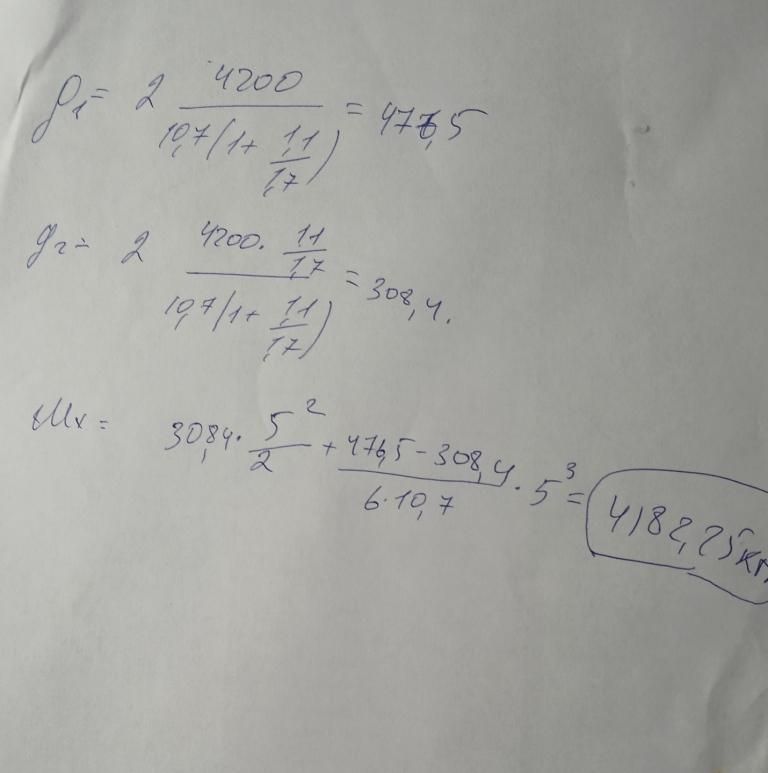 g₁ = 2 4200 / 10,7(1 + 1,1/1,7) = 476,5
g₂ = 2 4200 · 1,1/1,7 / 10,7(1 + 1,1/1,7) = 308,4.
Mx = 308,4 · 5²/2 + (476,5 - 308,4)/(6·10,7) · 5³ = 4182,25 кг